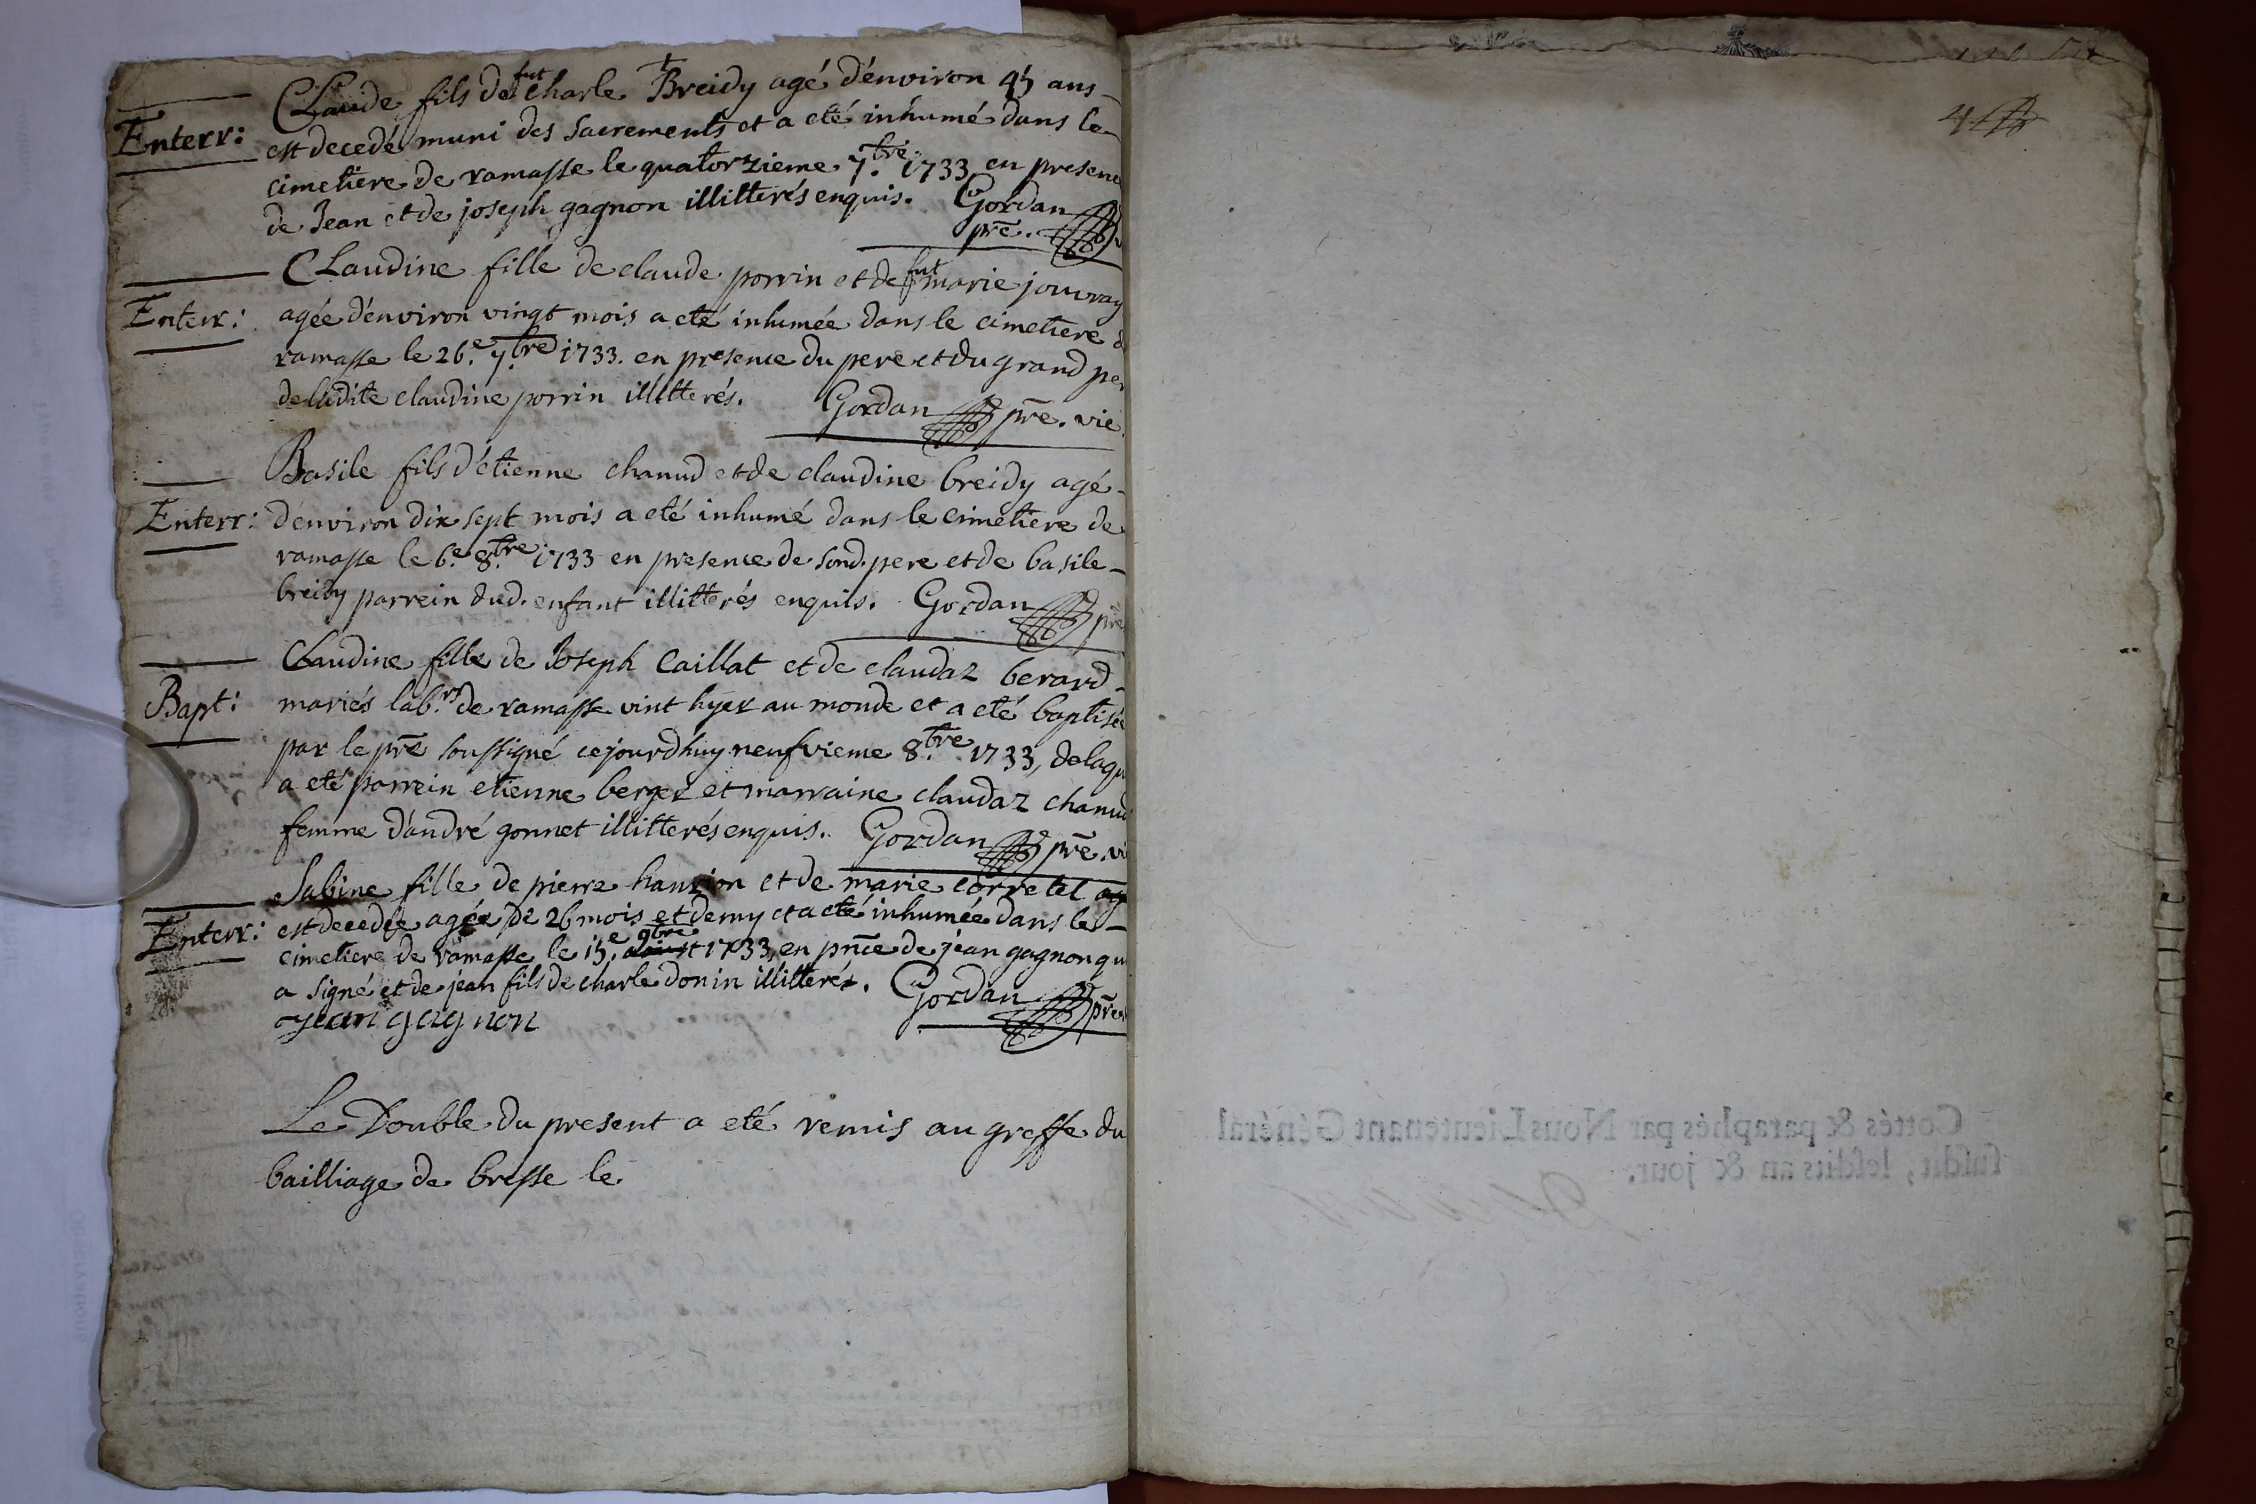 Claude fils de fut charle Breidy agé d'environ 45 ans
Enterr: est decedé muni des sacrements et a eté inhumé dans le
cimetiere de ramasse le quatorzieme 7.bre 1733 en presenc
de Jean et de joseph gagnon illitterés enquis. Gordan
pre.
CLaudine fille de claude porrin et de fut marie jouvray
Enterr: agée d'environ vingt mois a eté inhumée dans le cimetiere d
ramasse le 26.e 7.bre 1733. en presence du pere et du grand per
de ladite claudine porrin illitterés. Gordan pre. vic
Basile fils d'étienne chanud et de claudine breidy agé
Enterr: d'environ dix sept mois a eté inhumé dans le cimetiere de
ramasse le 6.e 8.bre 1733 en presence de sond. pere et de basile
breidy parrein dud. enfant illitterés enquis. Gordan pre
Claudine fille de Joseph Caillat et de claudaz berard
Bapt: mariés lab.rs de ramasse vint hyer au monde et a eté baptisée
par le pre soussigné cejourdhuy neufvieme 8.bre 1733, de laqu
a eté parrein etienne berger et marraine claudaz chanud
femme d'andré gonnet illitterés enquis. Gordan pre. vi
Sabine fille de pierre hanrion et de marie corretel
Enterr: est decedée agée de 26 mois et demy et a eté inhumée dans le
cimetiere de ramasse le 15.e 9bre 1733, en pnce de jean gagnon qu
a signé et de jean fils de charle donin illitterés. Gordan pre
jean gagnon
Le Double du present a eté remis au greffe du
bailliage de bresse le
4
Cottés & paraphés par Nous Lieutenant Général
susdit, lesdits an & jour.